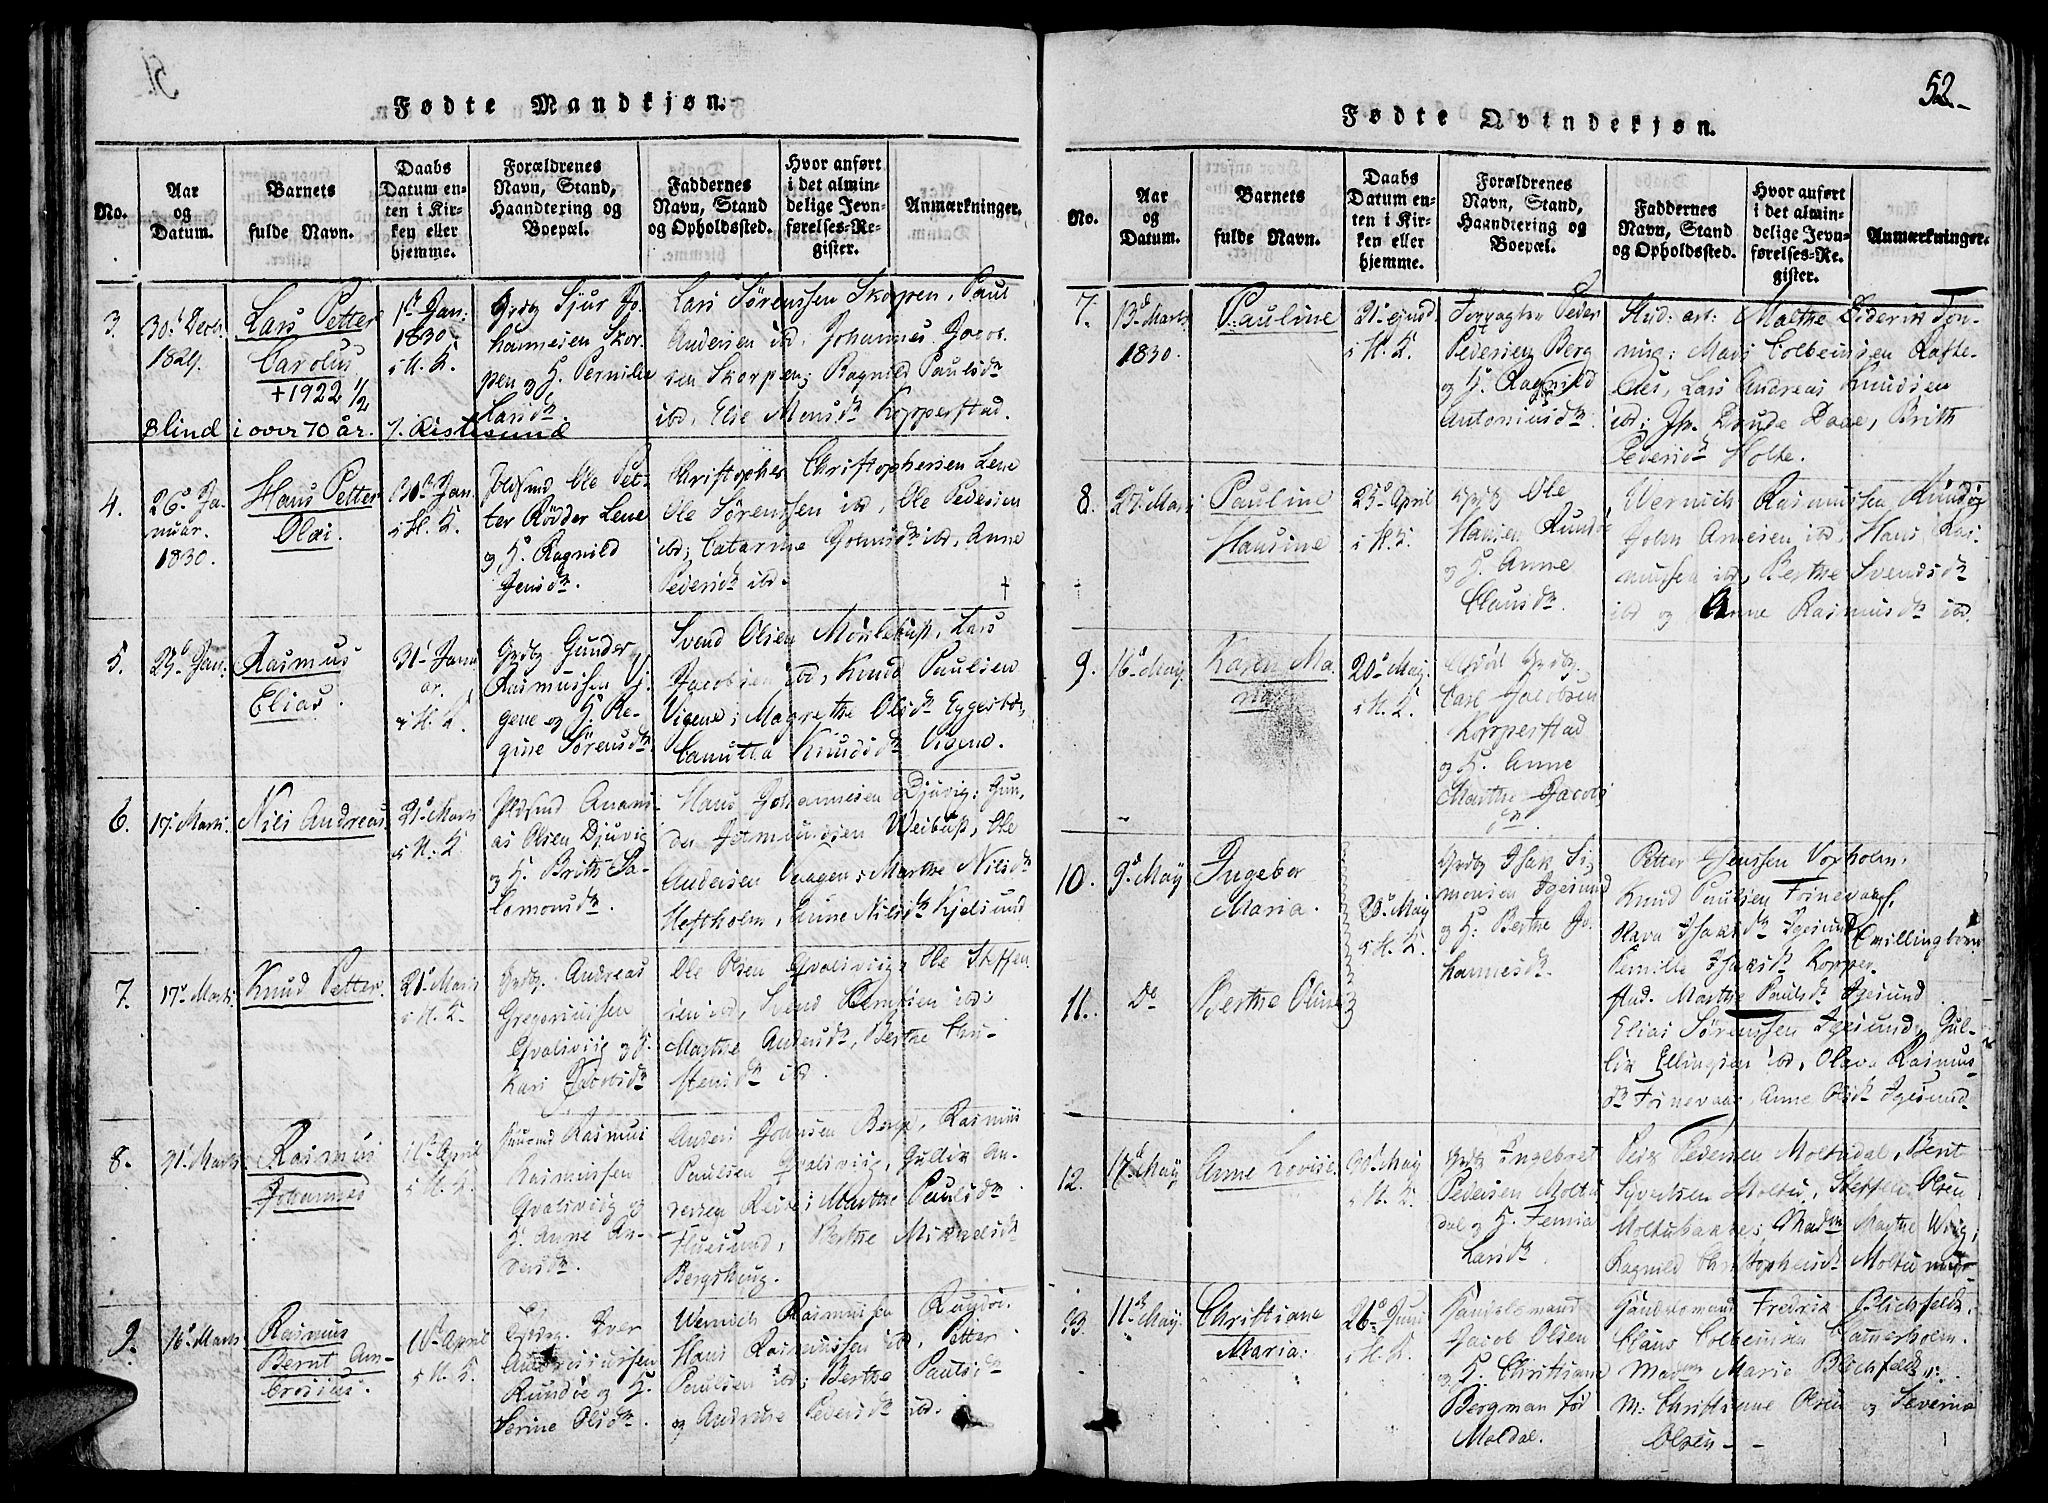 Fødte Mandkjøn.
No.
Aar
og
Datum.
Barnets
fulde Navn.
Daabs
Datum en-
ten i Kir-
ken eller
hjemme.
Forældrenes
Navn, Stand,
Haandtering og
Boepæl.
Faddernes
Navn, Stand
og Opholdssted.
Hvor anført
i det almin-
delige Jevn-
førelses-Re-
gister.
Anmærkninger.
3.
30. Decb.
1829.
Lars Petter
Carolus
+1922 1/2
Blind i over 70 år.
1ste Jan:
1830
i H. K.
Sjur Jo-
hannesen Skor-
pen og H. Pernille
Larsdr.
Lars Sørenssen Skorpen, Paul
Andersen ibd, Johannes Jacob-
sen Skorpen; Ragnild Paulsdr
ibd, Else Monsdr Kopperstad.
4.
26. Ja-
nuar.
1830.
Hans Petter
Olai.
30te Jan.
i H. K.
Ole Pet-
ter Rødder Lene
og H. Ragnild
Jensdr.
Christopher Christophersen Lene
Ole Sørenssen ibd, Ole Pedersen
ibd; Catarine Johnsdr ibd, Anne
Pedersdr ibd.
+
5.
29. Jan.
Rasmus
Elias.
31. Janu
ar.
i H. K.
Gunder
Rasmussen Vi-
gene og H. Re-
gine Sørensdr.
Svend Olsen Mørlebust, Lars
Jacobsen ibd, Knud Paulsen
Vigene; Magrethe Olsdr Eggesbøe,
Canutta Knudsdr Vigene.
6.
17. Marti.
Nils Andreas
21. Marti
i H. K.
Anani-
as Olsen Djuvig
og H. Brithe Sa-
lomonsdr.
Hans Johannesen Djuvig; Gun-
der Weibust, Ole
Andersen Vaagen; Marthe Nilsdr
Hestholm, Anne Nilsdr Kjelsund
7.
17. Marti.
Knud Petter.
21. Marti
i H. K.
Andreas
Gregoriussen
Qvalsvig og H.
Kari Jacobsdr
Ole Olsen Qvalsvig, Ole Steffen-
sen ibd, Svend Berntsen ibd;
Marthe Andersdr, Berthe Chri-
stensdr ibd.
8.
21. Marti
Rasmus
Johannes
11te April
i H. K.
Rasmus
Rasmussen
Qvalsvig og
H. Anne An-
dersdr.
Anders Johnsen Berge, Rasmus
Paulsen Qvalsvig, Gullik An-
dersen Reise; Marthe Paulsdr
Huesund, Berthe Mikkelsdr
Bergshoug.
9.
16. Marti
Rasmus
Bernt Am-
brosius.
11te April
i H. K.
Iver
Andreassen
Rundøe og H.
Serine Olsdr.
Wernich Rasmussen Rundøe.
Hans Rasmussen ibd, Petter
Paulsen ibd; Berthe Paulsdr
og Andrine Pedersdr ibd.
52
Fødte Qvindekjøn.
No.
Aar
og
Datum.
Barnets
fulde Navn.
Daabs
Datum en-
ten i Kir-
ken eller
hjemme.
Forældrenes
Navn, Stand,
Haandtering og
Boepæl.
Faddernes
Navn, Stand
og Opholdssted.
Hvor anført
i det almin-
delige Jevn-
førelses-Re-
gister.
Anmærkninger.
7.
13. Marts
1830.
Pauline
21. ejusd
i H. K.
Peder
Pedersen Berg
og H. Ragnild
Antoniusdr.
Stud: art: Malthe Diderik Jon-
ning: Mads Colbeinsen Rafte-
næs, Lars Andreas Knudsen
ibd; Daae, Brith
Pedersdr Holte.
8.
27. Marti
Pauline
Hansine
25. April
i H. K.
Ole
Hansen Rundøe
og H. Anne
Clausdr.
Wernich Rasmussen Rundøe
John Arnesen ibd, Hans Ras-
mussen ibd, Berthe Svendsdr
ibd og Anne Rasmusdr ibd.
9.
16. May.
Karen Ma-
na
20. May.
i H. K.
Carl Jacobsen
Kopperstad
og H. Anne
Marthe Jacobs
dr.
10.
9. May
Ingebor
Maria.
20. May
i H. K.
Isak Si-
monsen Igesund
og H: Berthe Jo-
hannesdr.
Petter Jenssen Voxholm,
Knud Paulsen Tornevaag,
Hava Isaksdr Igesund
Pernille Isaksdr Kopper-
stad. Marthe Paulsdr Igesund
Tvillingbørn
11.
Do
Berthe Oline
Elias Sørenssen Igesund, Gul-
lik Ellingsen ibd, Olava Rasmus-
dr Tornevaag, Anne Olsdr Igesund
12.
17. May
Anne Lovise.
30. May
i H. K.
Ingebret
Pedersen Moltu
dal og H. Femia
Larsdr.
Peder Pedersen Moltudal, Bent
Syvertsen Moltu, Steffen Olsen
Moltubakke; Madm Marthe Wiig,
Ragnild Christophersdr Moltu
13.
11te May.
Christiane
Maria.
26. Juni
i H. K.
Handelsmand
Jacob Olsen
og H. Christiane
Bergman for
Moldal.
Handelsmand Fredrik Blichfeldt.
Claus Colbeinsen Dommerholm.
Madm Marie Blichfeldt,
M: Christiane Olsen og Severine
Olsen